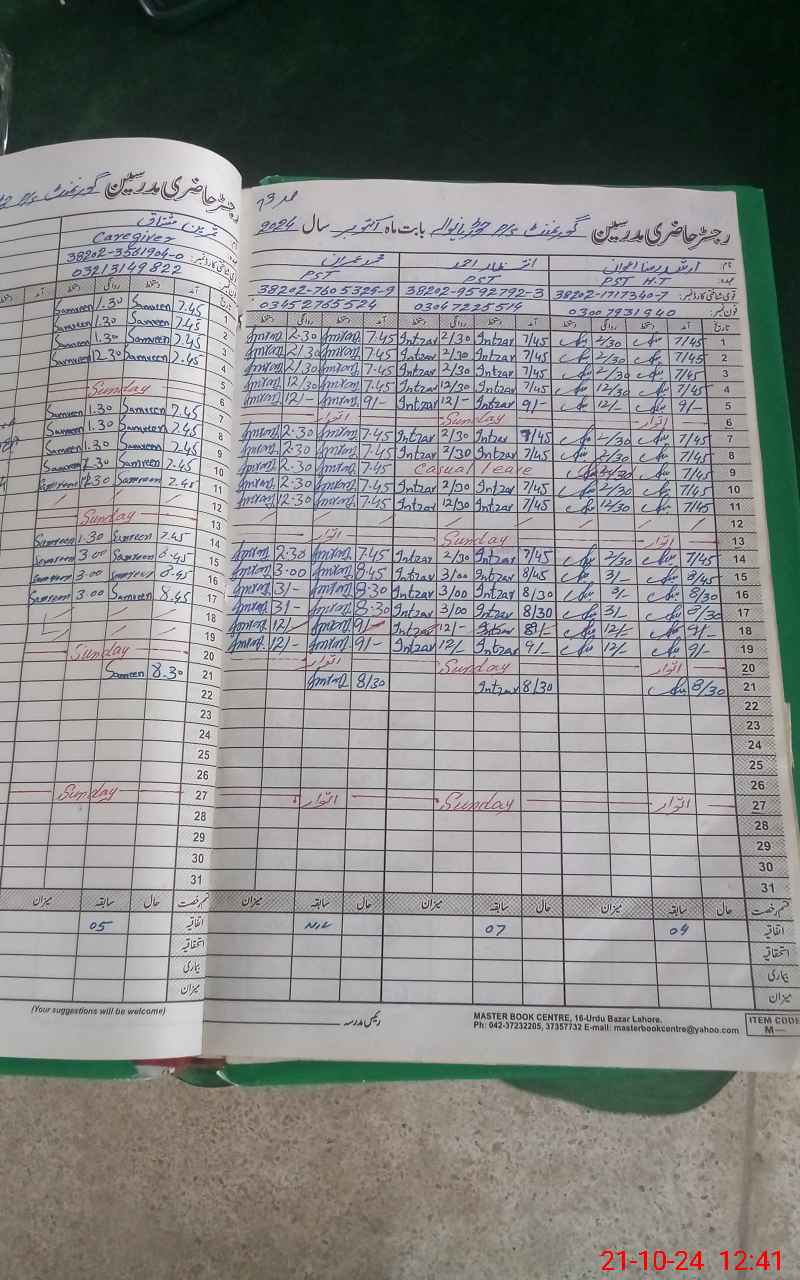 رجسٹر حاضری مدرسین گورنمنٹ P/S بابت ماہ اکتوبر سال 2024
نام
PST H.T
PST انتظار احمد
PST محمد عمران
قومی شناختی کارڈ نمبر: 38202-1717340-7 38202-9592792-3 38202-7605325-9
فون نمبر: 03007931940 03047225514 03452765524
تاریخ آمد دستخط روانگی دستخط آمد دستخط روانگی دستخط آمد دستخط روانگی دستخط
1 7/45 2/30 7/45 Intzar 2/30 Intzar 7.45 Imran 2.30 Imran
2 7/45 2/30 7/45 Intzar 2/30 Intzar 7.45 Imran 2/30 Imran
3 7/45 2/30 7/45 Intzar 2/30 Intzar 7.45 Imran 2/30 Imran
4 7/45 12/30 7/45 Intzar 12/30 Intzar 7.45 Imran 12/30 Imran
5 9/- 12/- 9/- Intzar 12/- Intzar 9/- Imran 12/- Imran
6 اتوار Sunday اتوار
7 7/45 2/30 7/45 Intzar 2/30 Intzar 7.45 Imran 2.30 Imran
8 7/45 2/30 7/45 Intzar 2/30 Intzar 7.45 Imran 2.30 Imran
9 7/45 2/30 Casual leave 7.45 Imran 2.30 Imran
10 7/45 2/30 7/45 Intzar 2/30 Intzar 7.45 Imran 2.30 Imran
11 7/45 12/30 7/45 Intzar 12/30 Intzar 7.45 Imran 12.30 Imran
12
13 اتوار Sunday اتوار
14 7/45 2/30 7/45 Intzar 2/30 Intzar 7.45 Imran 2.30 Imran
15 8/45 3/- 8/45 Intzar 3/00 Intzar 8.45 Imran 3.00 Imran
16 8/30 3/- 8/30 Intzar 3/00 Intzar 8.30 Imran 3/- Imran
17 8/30 3/- 8/30 Intzar 3/00 Intzar 8.30 Imran 3/- Imran
18 9/- 12/- Intzar 12/- Intzar 9/- Imran 12/- Imran
19 9/- 12/- 9/- Intzar 12/- Intzar 9/- Imran 12/- Imran
20 اتوار Sunday اتوار
21 8/30 8/30 Intzar 8/30 Imran
22
23
24
25
26
27 اتوار Sunday اتوار
28
29
30
31
قسم رخصت حال سابقہ میزان حال سابقہ میزان حال سابقہ میزان
اتفاقیہ 04 07 NIL
استحقاقیہ
بیماری
میزان
رئیس مدرسہ
MASTER BOOK CENTRE, 16-Urdu Bazar Lahore.
Ph: 042-37232205, 37357732 E-mail: masterbookcentre@yahoo.com
ITEM CODE
M—
رجسٹر حاضری مدرسین گورنمنٹ P/S
Caregiver
38202-3561904-0
03213149822
تاریخ آمد دستخط روانگی دستخط
1 7.45 Samreen 1.30 Samreen
2 7.45 Samreen 1.30 Samreen
3 7.45 Samreen 1.30 Samreen
4 7.45 Samreen 12.30 Samreen
5
6 Sunday
7 7.45 Samreen 1.30 Samreen
8 7.45 Samreen 1.30 Samreen
9 7.45 Samreen 1.30 Samreen
10 7.45 Samreen 1.30 Samreen
11 7.45 Samreen 12.30 Samreen
12
13 Sunday
14 7.45 Samreen 1.30 Samreen
15 8.45 Samreen 3.00 Samreen
16 8.45 Samreen 3.00 Samreen
17 8.45 Samreen 3.00 Samreen
18
19
20 Sunday
21 8.30 Samreen
22
23
24
25
26
27 Sunday
28
29
30
31
قسم رخصت حال سابقہ میزان
اتفاقیہ 05
استحقاقیہ
بیماری
میزان
(Your suggestions will be welcome)
21-10-24 12:41